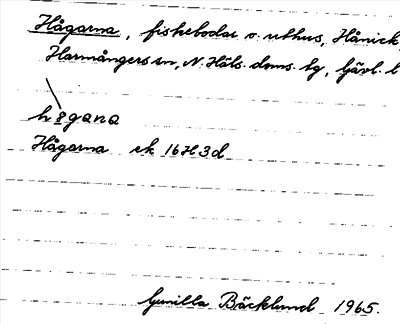 Hågarna, fiskebodar o. uthus, Hånick
Harmångers sn, N. Häls. doms. tg, Gävl. l
hågana
Hågarna ek 16H3d
Gunilla Bäcklund 1965.